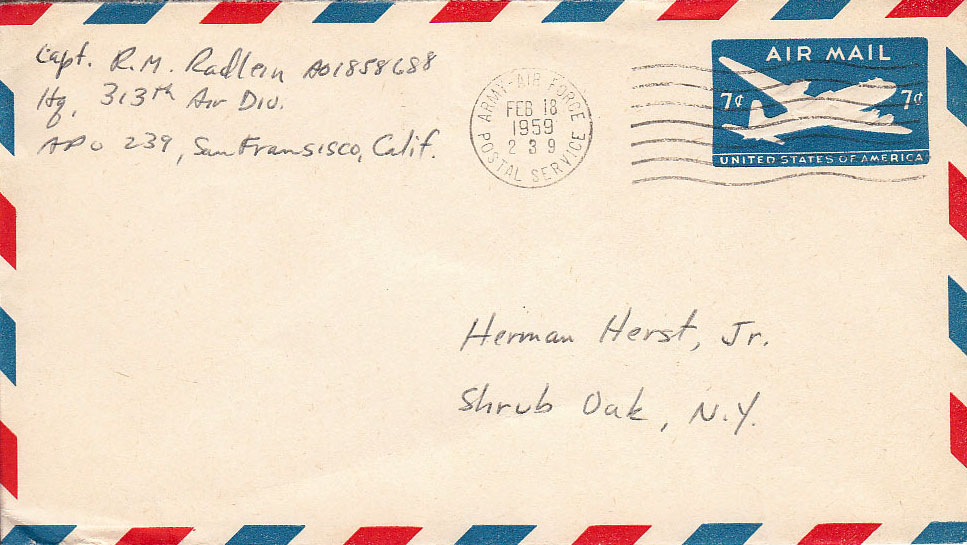 Capt. R.M. Radlein AO1858688
Hq. 313th Air Div.
APO 239, San Fransisco, Calif.
ARMY-AIR FORCE
FEB 18
1959
2 3 9
POSTAL SERVICE
AIR MAIL
7¢ 7¢
UNITED STATES OF AMERICA
Herman Herst, Jr.
Shrub Oak, N.Y.